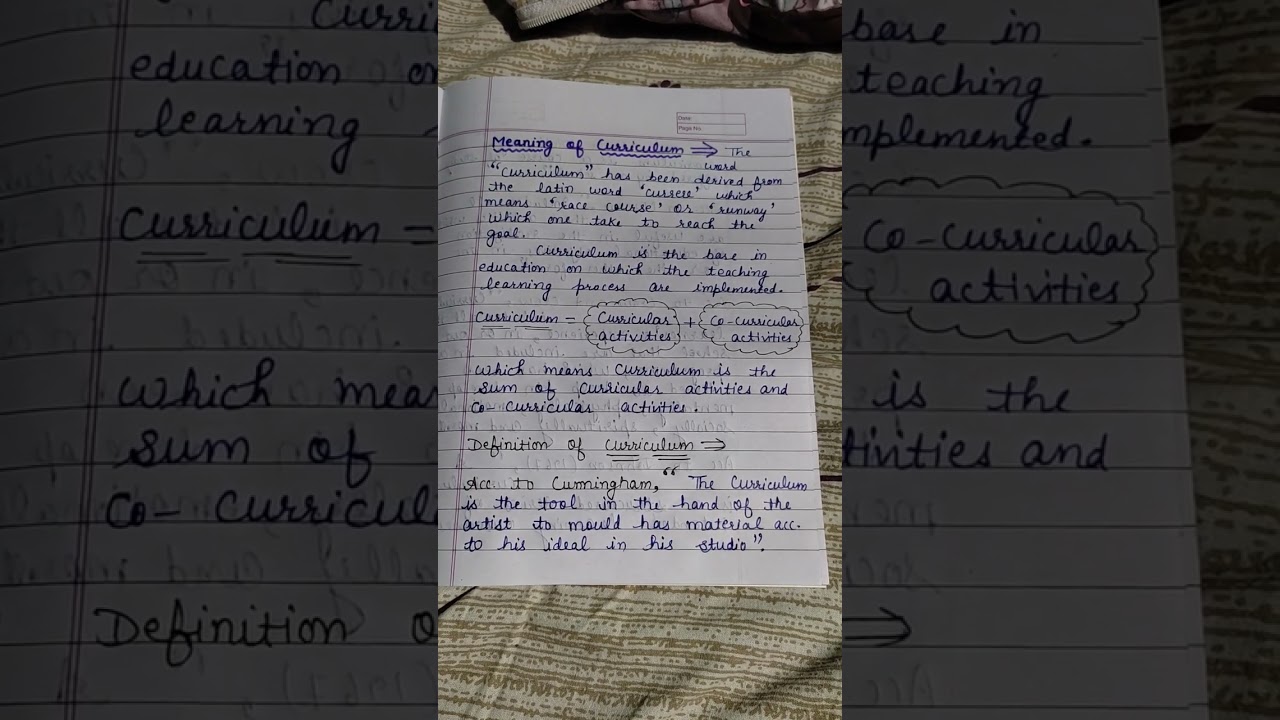 Date:
Page No.
Meaning of Curriculum ⇒ The
word
"Curriculum" has been derived from
the latin word 'cursere' which
means 'race course' or 'runway'
which one take to reach the
goal.
Curriculum is the base in
education on which the teaching
learning process are implemented.
Curriculum = Curricular activities + Co-curricular activities
which means Curriculum is the
sum of curricular activities and
Co-curricular activities.
Definition of Curriculum ⇒
Acc. to Cunningham, " The Curriculum
is the tool in the hand of the
artist to mould has material acc.
to his ideal in his studio".